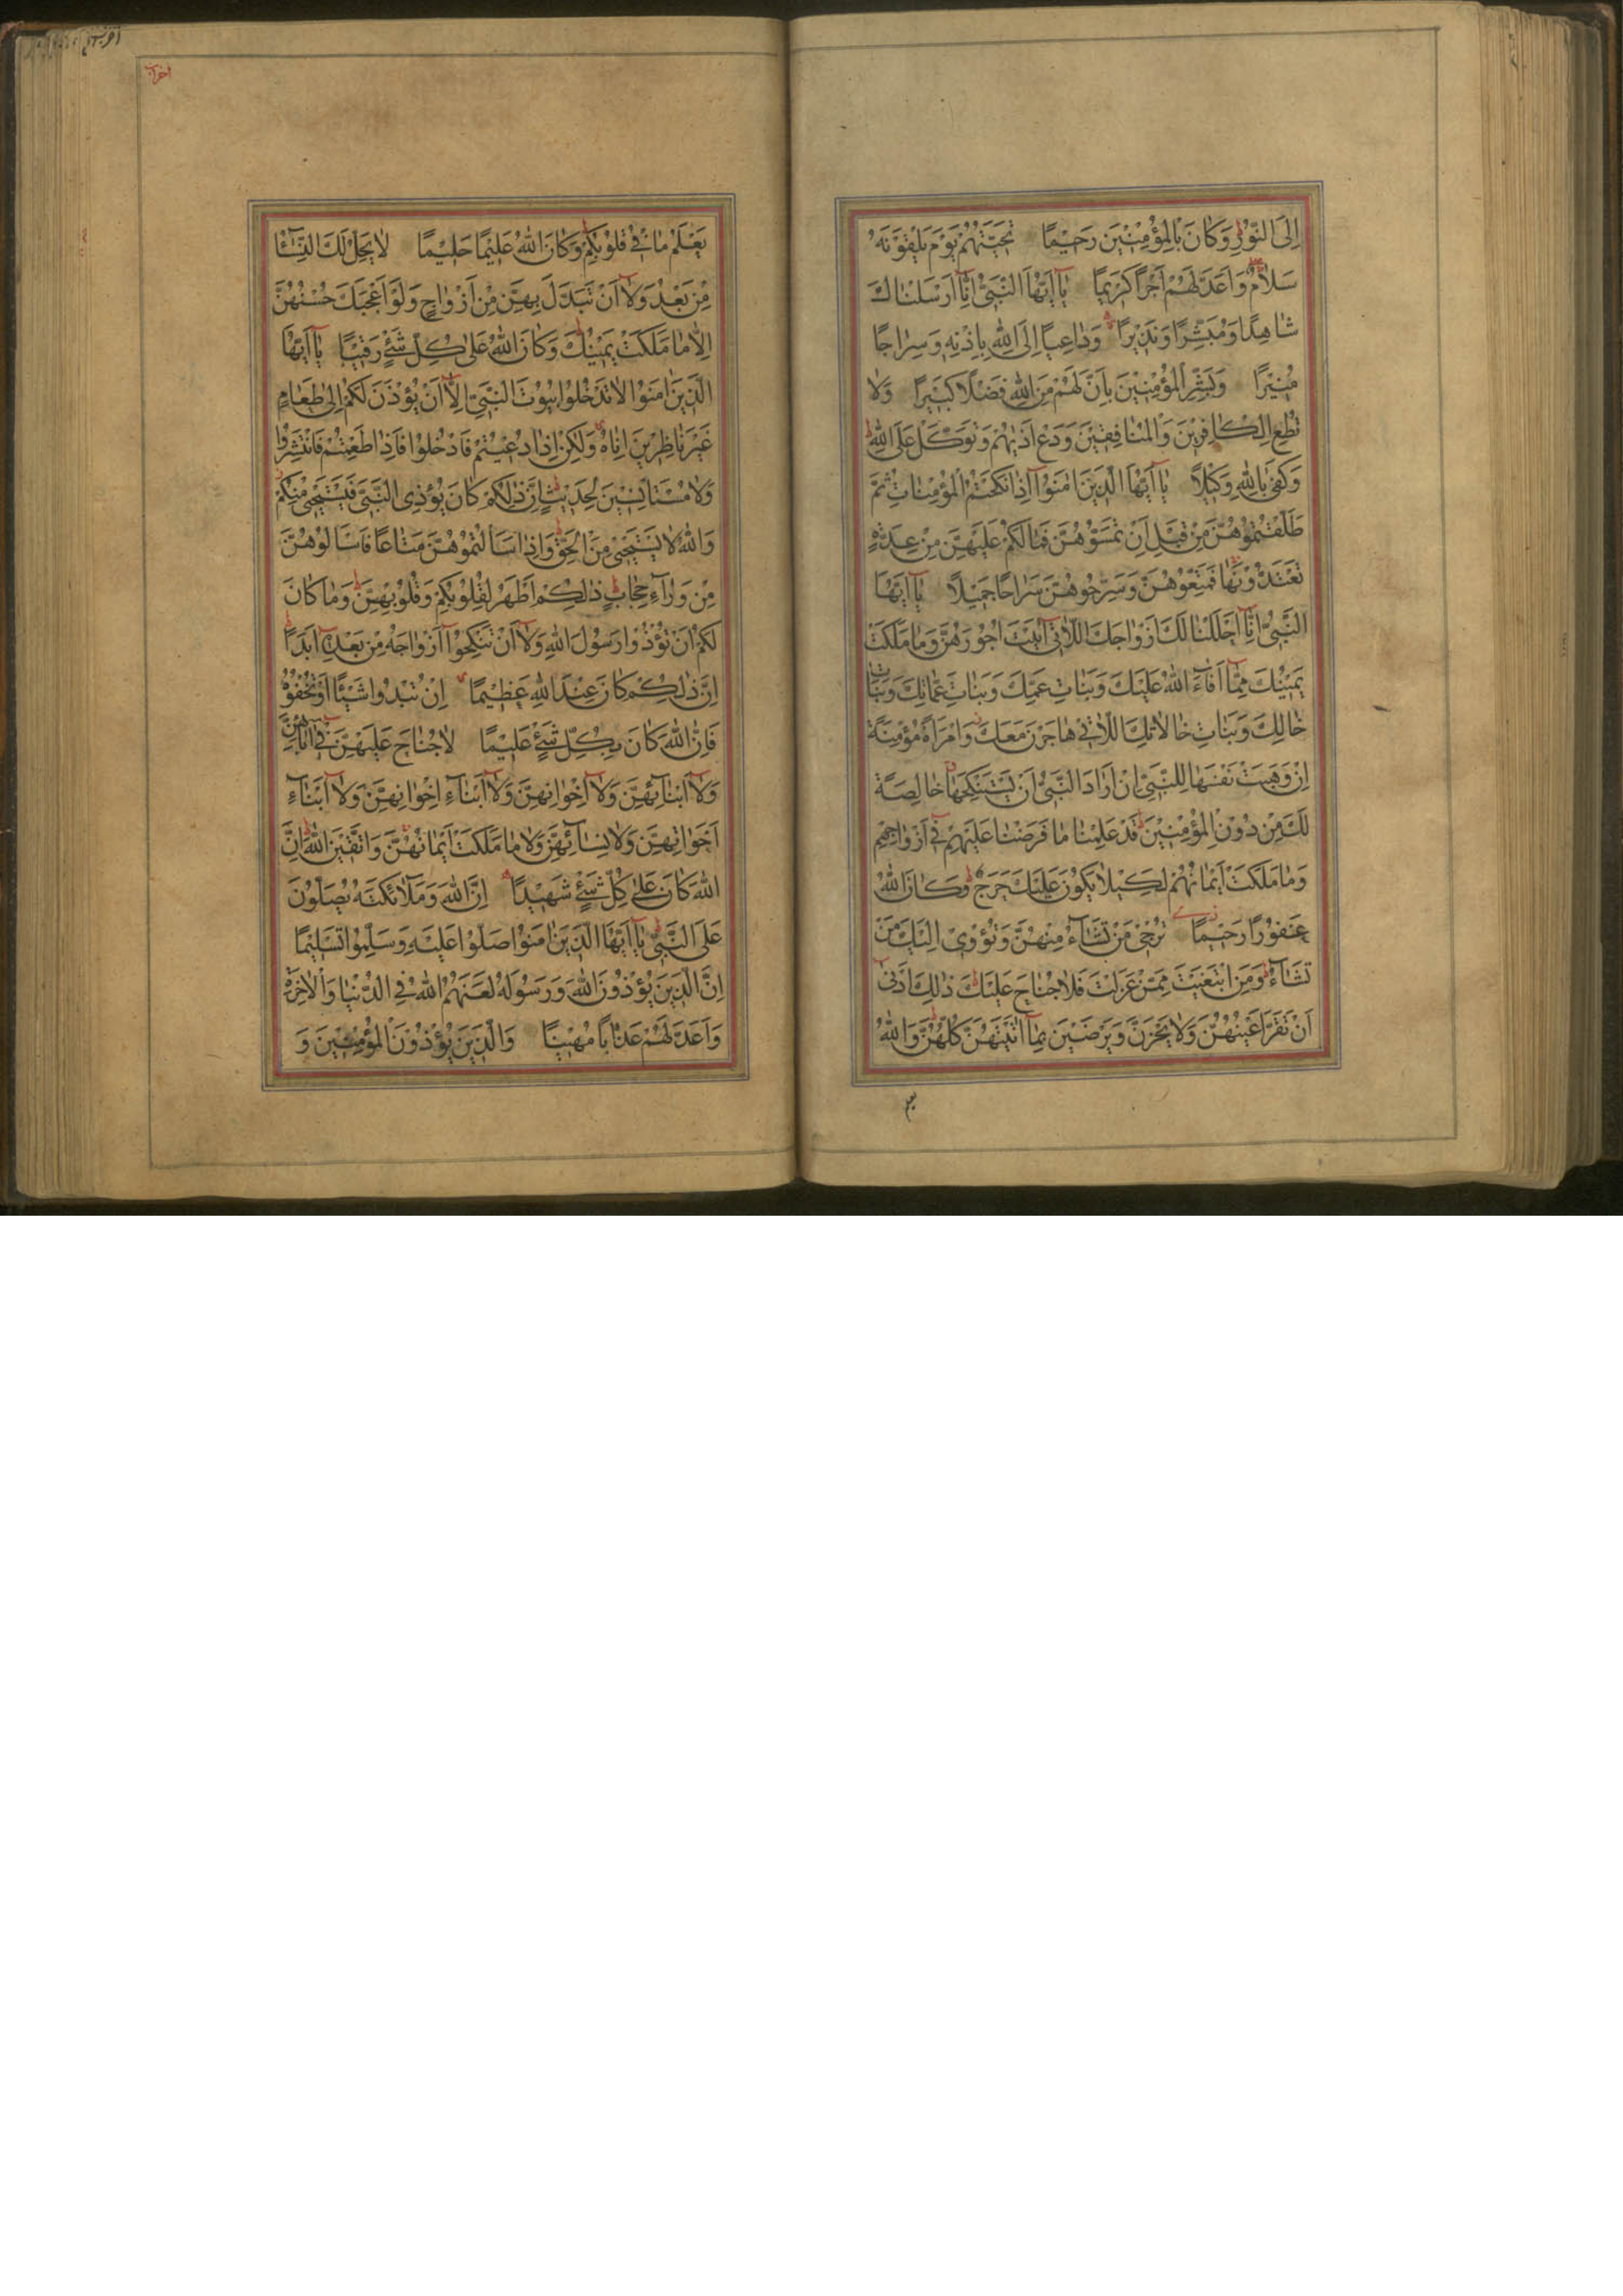 إِلَى النُّورِ وَكَانَ بِالْمُؤْمِنِينَ رَحِيمًا تَحِيَّتُهُمْ يَوْمَ يَلْقَوْنَهُ
سَلَامٌ وَأَعَدَّ لَهُمْ أَجْرًا كَرِيمًا يَا أَيُّهَا النَّبِيُّ إِنَّا أَرْسَلْنَاكَ
شَاهِدًا وَمُبَشِّرًا وَنَذِيرًا وَدَاعِيًا إِلَى اللَّهِ بِإِذْنِهِ وَسِرَاجًا
مُنِيرًا وَبَشِّرِ الْمُؤْمِنِينَ بِأَنَّ لَهُمْ مِنَ اللَّهِ فَضْلًا كَبِيرًا وَلَا
تُطِعِ الْكَافِرِينَ وَالْمُنَافِقِينَ وَدَعْ أَذَاهُمْ وَتَوَكَّلْ عَلَى اللَّهِ
وَكَفَى بِاللَّهِ وَكِيلًا يَا أَيُّهَا الَّذِينَ آمَنُوا إِذَا نَكَحْتُمُ الْمُؤْمِنَاتِ ثُمَّ
طَلَّقْتُمُوهُنَّ مِنْ قَبْلِ أَنْ تَمَسُّوهُنَّ فَمَا لَكُمْ عَلَيْهِنَّ مِنْ عِدَّةٍ
تَعْتَدُّونَهَا فَمَتِّعُوهُنَّ وَسَرِّحُوهُنَّ سَرَاحًا جَمِيلًا يَا أَيُّهَا
النَّبِيُّ إِنَّا أَحْلَلْنَا لَكَ أَزْوَاجَكَ اللَّاتِي آتَيْتَ أُجُورَهُنَّ وَمَا مَلَكَتْ
يَمِينُكَ مِمَّا أَفَاءَ اللَّهُ عَلَيْكَ وَبَنَاتِ عَمِّكَ وَبَنَاتِ عَمَّاتِكَ وَبَنَاتِ
خَالِكَ وَبَنَاتِ خَالَاتِكَ اللَّاتِي هَاجَرْنَ مَعَكَ وَامْرَأَةً مُؤْمِنَةً
إِنْ وَهَبَتْ نَفْسَهَا لِلنَّبِيِّ إِنْ أَرَادَ النَّبِيُّ أَنْ يَسْتَنْكِحَهَا خَالِصَةً
لَكَ مِنْ دُونِ الْمُؤْمِنِينَ قَدْ عَلِمْنَا مَا فَرَضْنَا عَلَيْهِمْ فِي أَزْوَاجِهِمْ
وَمَا مَلَكَتْ أَيْمَانُهُمْ لِكَيْلَا يَكُونَ عَلَيْكَ حَرَجٌ وَكَانَ اللَّهُ
غَفُورًا رَحِيمًا تُرْجِي مَنْ تَشَاءُ مِنْهُنَّ وَتُؤْوِي إِلَيْكَ مَنْ
تَشَاءُ وَمَنِ ابْتَغَيْتَ مِمَّنْ عَزَلْتَ فَلَا جُنَاحَ عَلَيْكَ ذَلِكَ أَدْنَى
أَنْ تَقَرَّ أَعْيُنُهُنَّ وَلَا يَحْزَنَّ وَيَرْضَيْنَ بِمَا آتَيْتَهُنَّ كُلُّهُنَّ وَاللَّهُ
يَعْلَمُ مَا فِي قُلُوبِكُمْ وَكَانَ اللَّهُ عَلِيمًا حَلِيمًا لَا يَحِلُّ لَكَ النِّسَاءُ
مِنْ بَعْدُ وَلَا أَنْ تَبَدَّلَ بِهِنَّ مِنْ أَزْوَاجٍ وَلَوْ أَعْجَبَكَ حُسْنُهُنَّ
إِلَّا مَا مَلَكَتْ يَمِينُكَ وَكَانَ اللَّهُ عَلَى كُلِّ شَيْءٍ رَقِيبًا يَا أَيُّهَا
الَّذِينَ آمَنُوا لَا تَدْخُلُوا بُيُوتَ النَّبِيِّ إِلَّا أَنْ يُؤْذَنَ لَكُمْ إِلَى طَعَامٍ
غَيْرَ نَاظِرِينَ إِنَاهُ وَلَكِنْ إِذَا دُعِيتُمْ فَادْخُلُوا فَإِذَا طَعِمْتُمْ فَانْتَشِرُوا
وَلَا مُسْتَأْنِسِينَ لِحَدِيثٍ إِنَّ ذَلِكُمْ كَانَ يُؤْذِي النَّبِيَّ فَيَسْتَحْيِي مِنْكُمْ
وَاللَّهُ لَا يَسْتَحْيِي مِنَ الْحَقِّ وَإِذَا سَأَلْتُمُوهُنَّ مَتَاعًا فَاسْأَلُوهُنَّ
مِنْ وَرَاءِ حِجَابٍ ذَلِكُمْ أَطْهَرُ لِقُلُوبِكُمْ وَقُلُوبِهِنَّ وَمَا كَانَ
لَكُمْ أَنْ تُؤْذُوا رَسُولَ اللَّهِ وَلَا أَنْ تَنْكِحُوا أَزْوَاجَهُ مِنْ بَعْدِهِ أَبَدًا
إِنَّ ذَلِكُمْ كَانَ عِنْدَ اللَّهِ عَظِيمًا إِنْ تُبْدُوا شَيْئًا أَوْ تُخْفُوهُ
فَإِنَّ اللَّهَ كَانَ بِكُلِّ شَيْءٍ عَلِيمًا لَا جُنَاحَ عَلَيْهِنَّ فِي آبَائِهِنَّ
وَلَا أَبْنَائِهِنَّ وَلَا إِخْوَانِهِنَّ وَلَا أَبْنَاءِ إِخْوَانِهِنَّ وَلَا أَبْنَاءِ
أَخَوَاتِهِنَّ وَلَا نِسَائِهِنَّ وَلَا مَا مَلَكَتْ أَيْمَانُهُنَّ وَاتَّقِينَ اللَّهَ إِنَّ
اللَّهَ كَانَ عَلَى كُلِّ شَيْءٍ شَهِيدًا إِنَّ اللَّهَ وَمَلَائِكَتَهُ يُصَلُّونَ
عَلَى النَّبِيِّ يَا أَيُّهَا الَّذِينَ آمَنُوا صَلُّوا عَلَيْهِ وَسَلِّمُوا تَسْلِيمًا
إِنَّ الَّذِينَ يُؤْذُونَ اللَّهَ وَرَسُولَهُ لَعَنَهُمُ اللَّهُ فِي الدُّنْيَا وَالْآخِرَةِ
وَأَعَدَّ لَهُمْ عَذَابًا مُهِينًا وَالَّذِينَ يُؤْذُونَ الْمُؤْمِنِينَ وَ